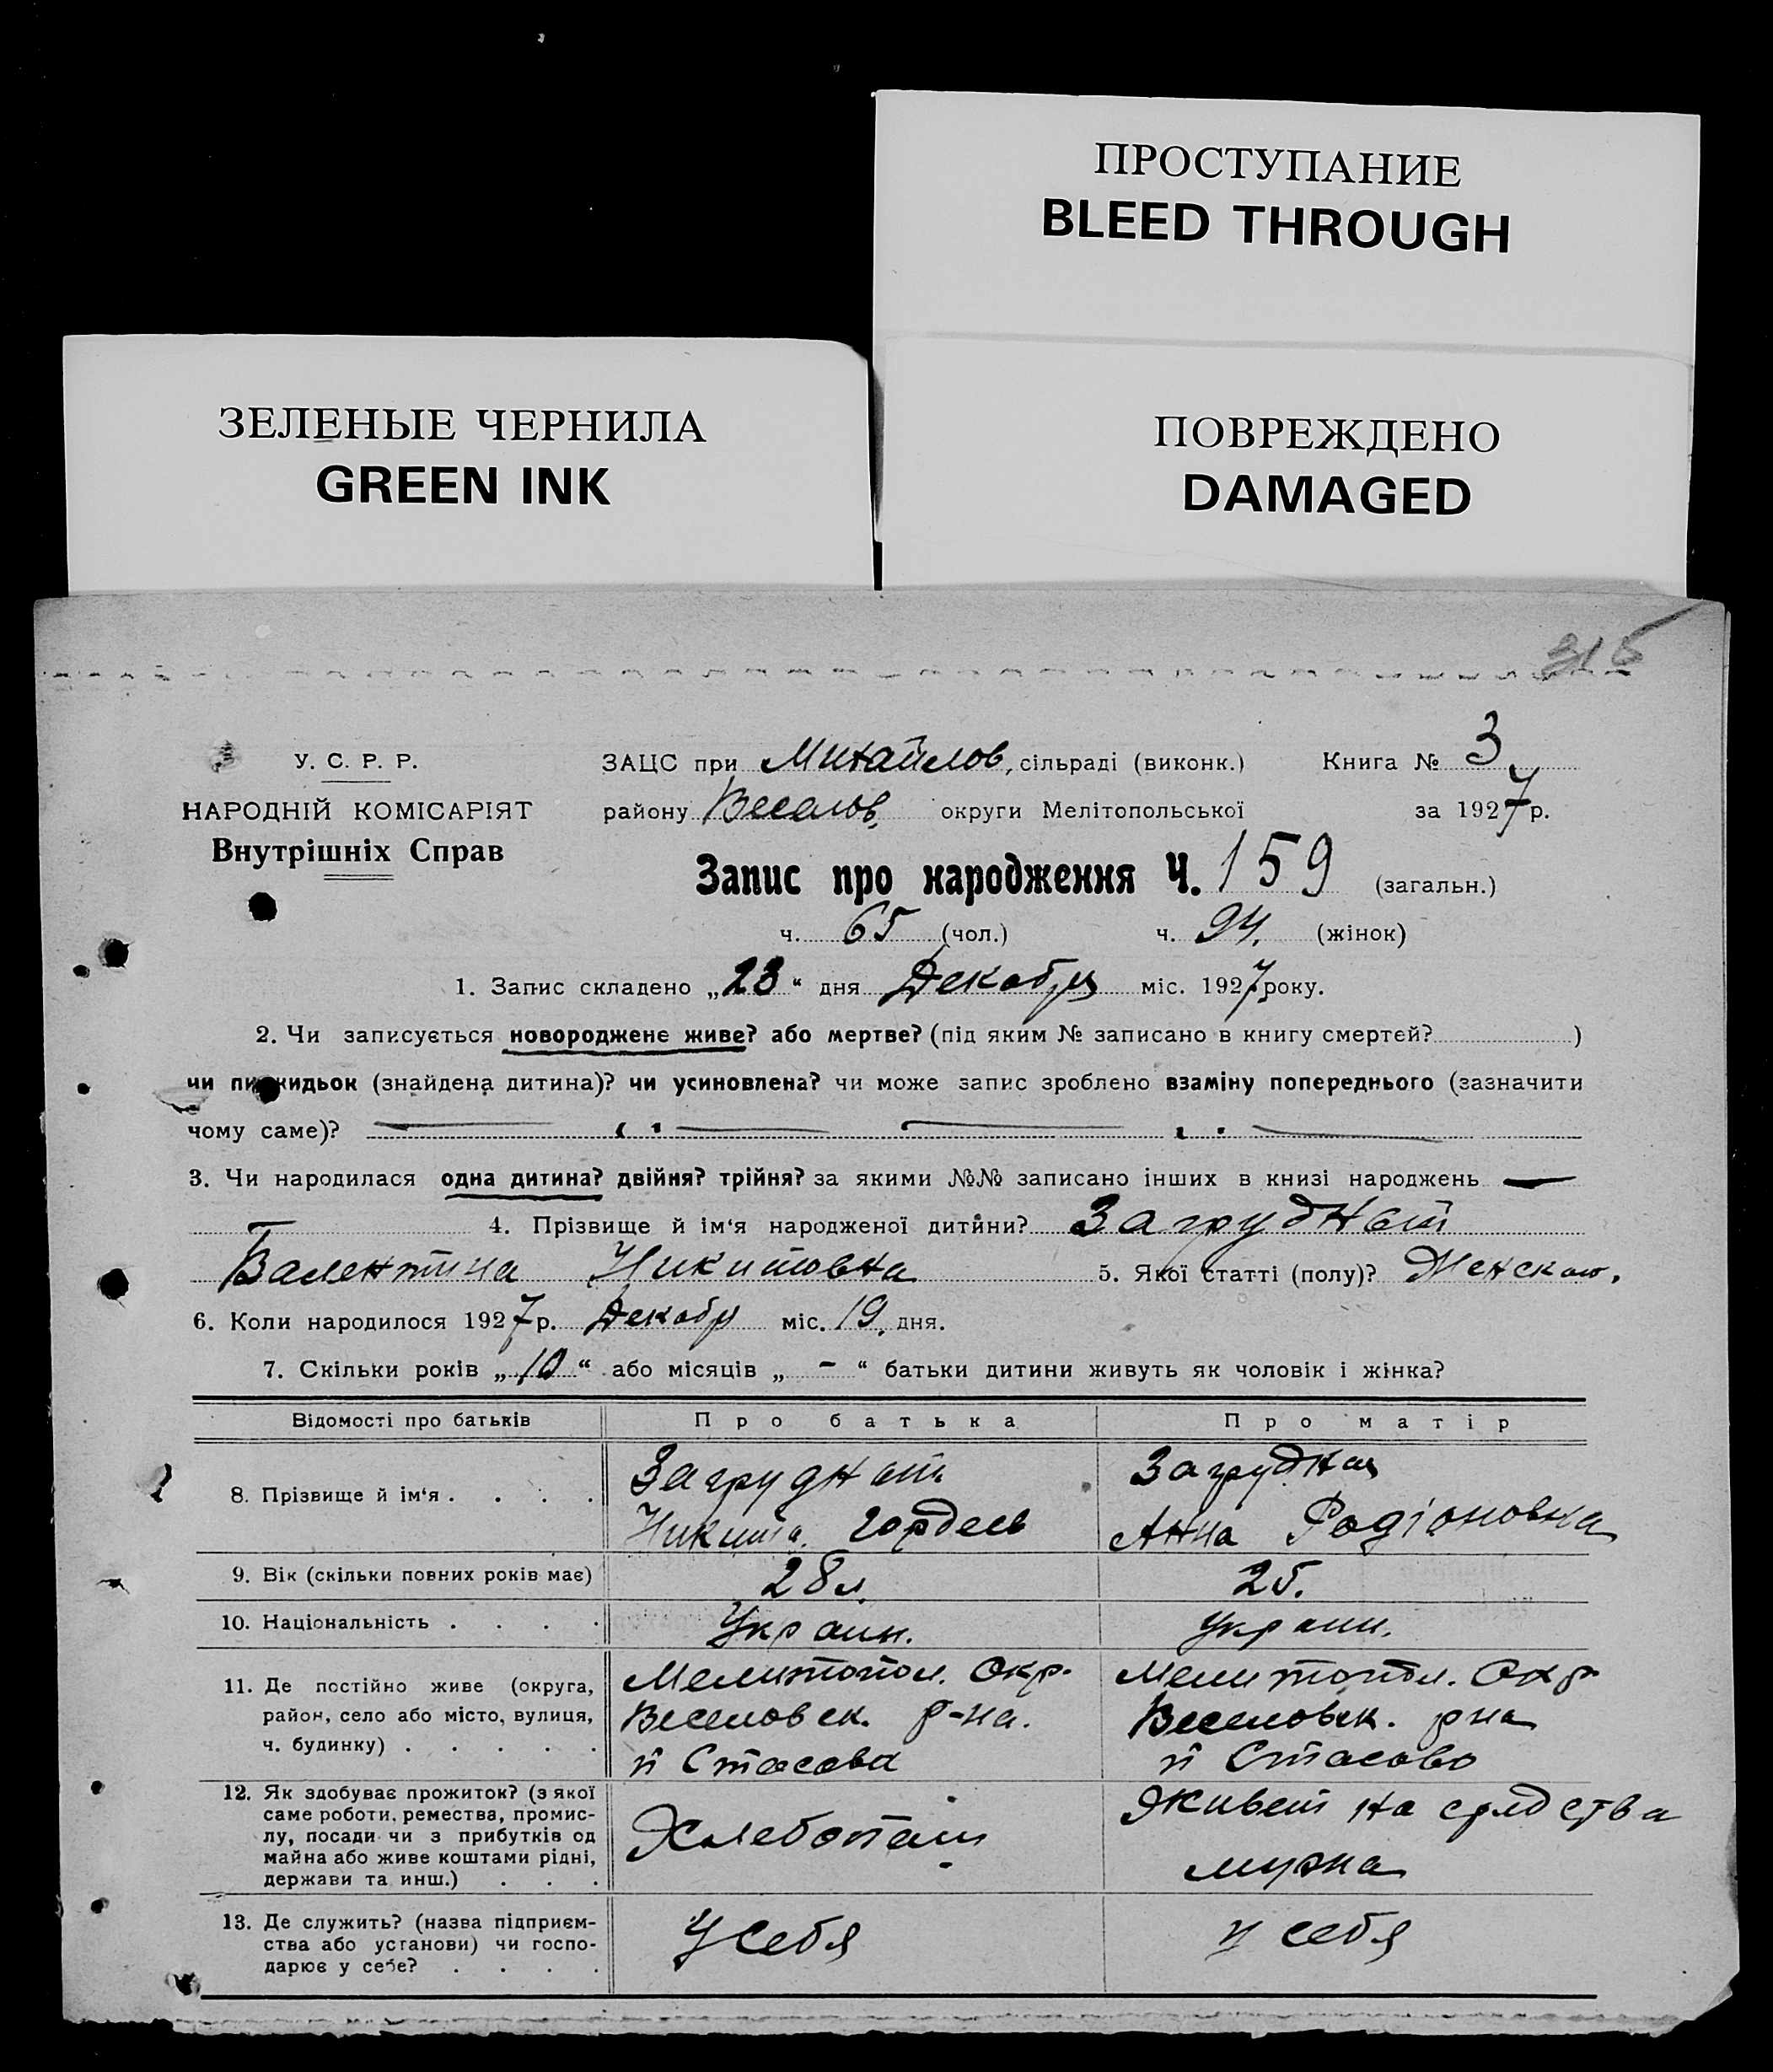 ПРОСТУПАНИЕ
BLEED THROUGH
ЗЕЛЕНЫЕ ЧЕРНИЛА
GREEN INK
ПОВРЕЖДЕНО
DAMAGED
315
У. С. Р. Р.
НАРОДНІЙ КОМІСАРІЯТ
Внутрішніх Справ
ЗАЦС при Михайлов, сільраді (виконк.) Книга № 3
району Веселов. округи Мелітопольської за 1927 р.
Запис про народження Ч. 159 (загальн.)
ч. 65 (чол.) ч. 94. (жінок)
1. Запис складено „23“ дня Декабря міс. 1927 року.
2. Чи записується новороджене живе? або мертве? (під яким № записано в книгу смертей? )
чи підкидьок (знайдена дитина)? чи усиновлена? чи може запис зроблено взаміну попереднього (зазначити
чому саме)?
3. Чи народилася одна дитина? двійня? трійня? за якими №№ записано інших в книзі народжень —
4. Прізвище й ім‘я народженої дитини? Загрудной
Валентина Никитовна 5. Якої статті (полу)? Женского.
6. Коли народилося 1927 р. Декабр міс. 19, дня.
7. Скільки років „10“ або місяців „-“ батьки дитини живуть як чоловік і жінка?
Відомості про батьків Про батька Про матір
8. Прізвище й ім‘я . . . . Загрудной Загрудная
Никита Гордеев Анна Родіоновна
9. Вік (скільки повних років має) 28 л. 25.
10. Національність . . . . Украин. Украин.
11. Де постійно живе (округа, Мелитопол. Окр. Мелитопол. Окр.
район, село або місто, вулиця, Веселовск. р-на. Веселовск. рна
ч. будинку) . . . . . п Стасова п Стасово
12. Як здобуває прожиток? (з якої
саме роботи, ремества, промис-
лу, посади чи з прибутків од
майна або живе коштами рідні,
держави та инш.) . . .
Хлебопаш
Живет на средства
мужа
13. Де служить? (назва підприєм-
ства або установи) чи госпо-
дарює у себе? . . . .
У себя у себя